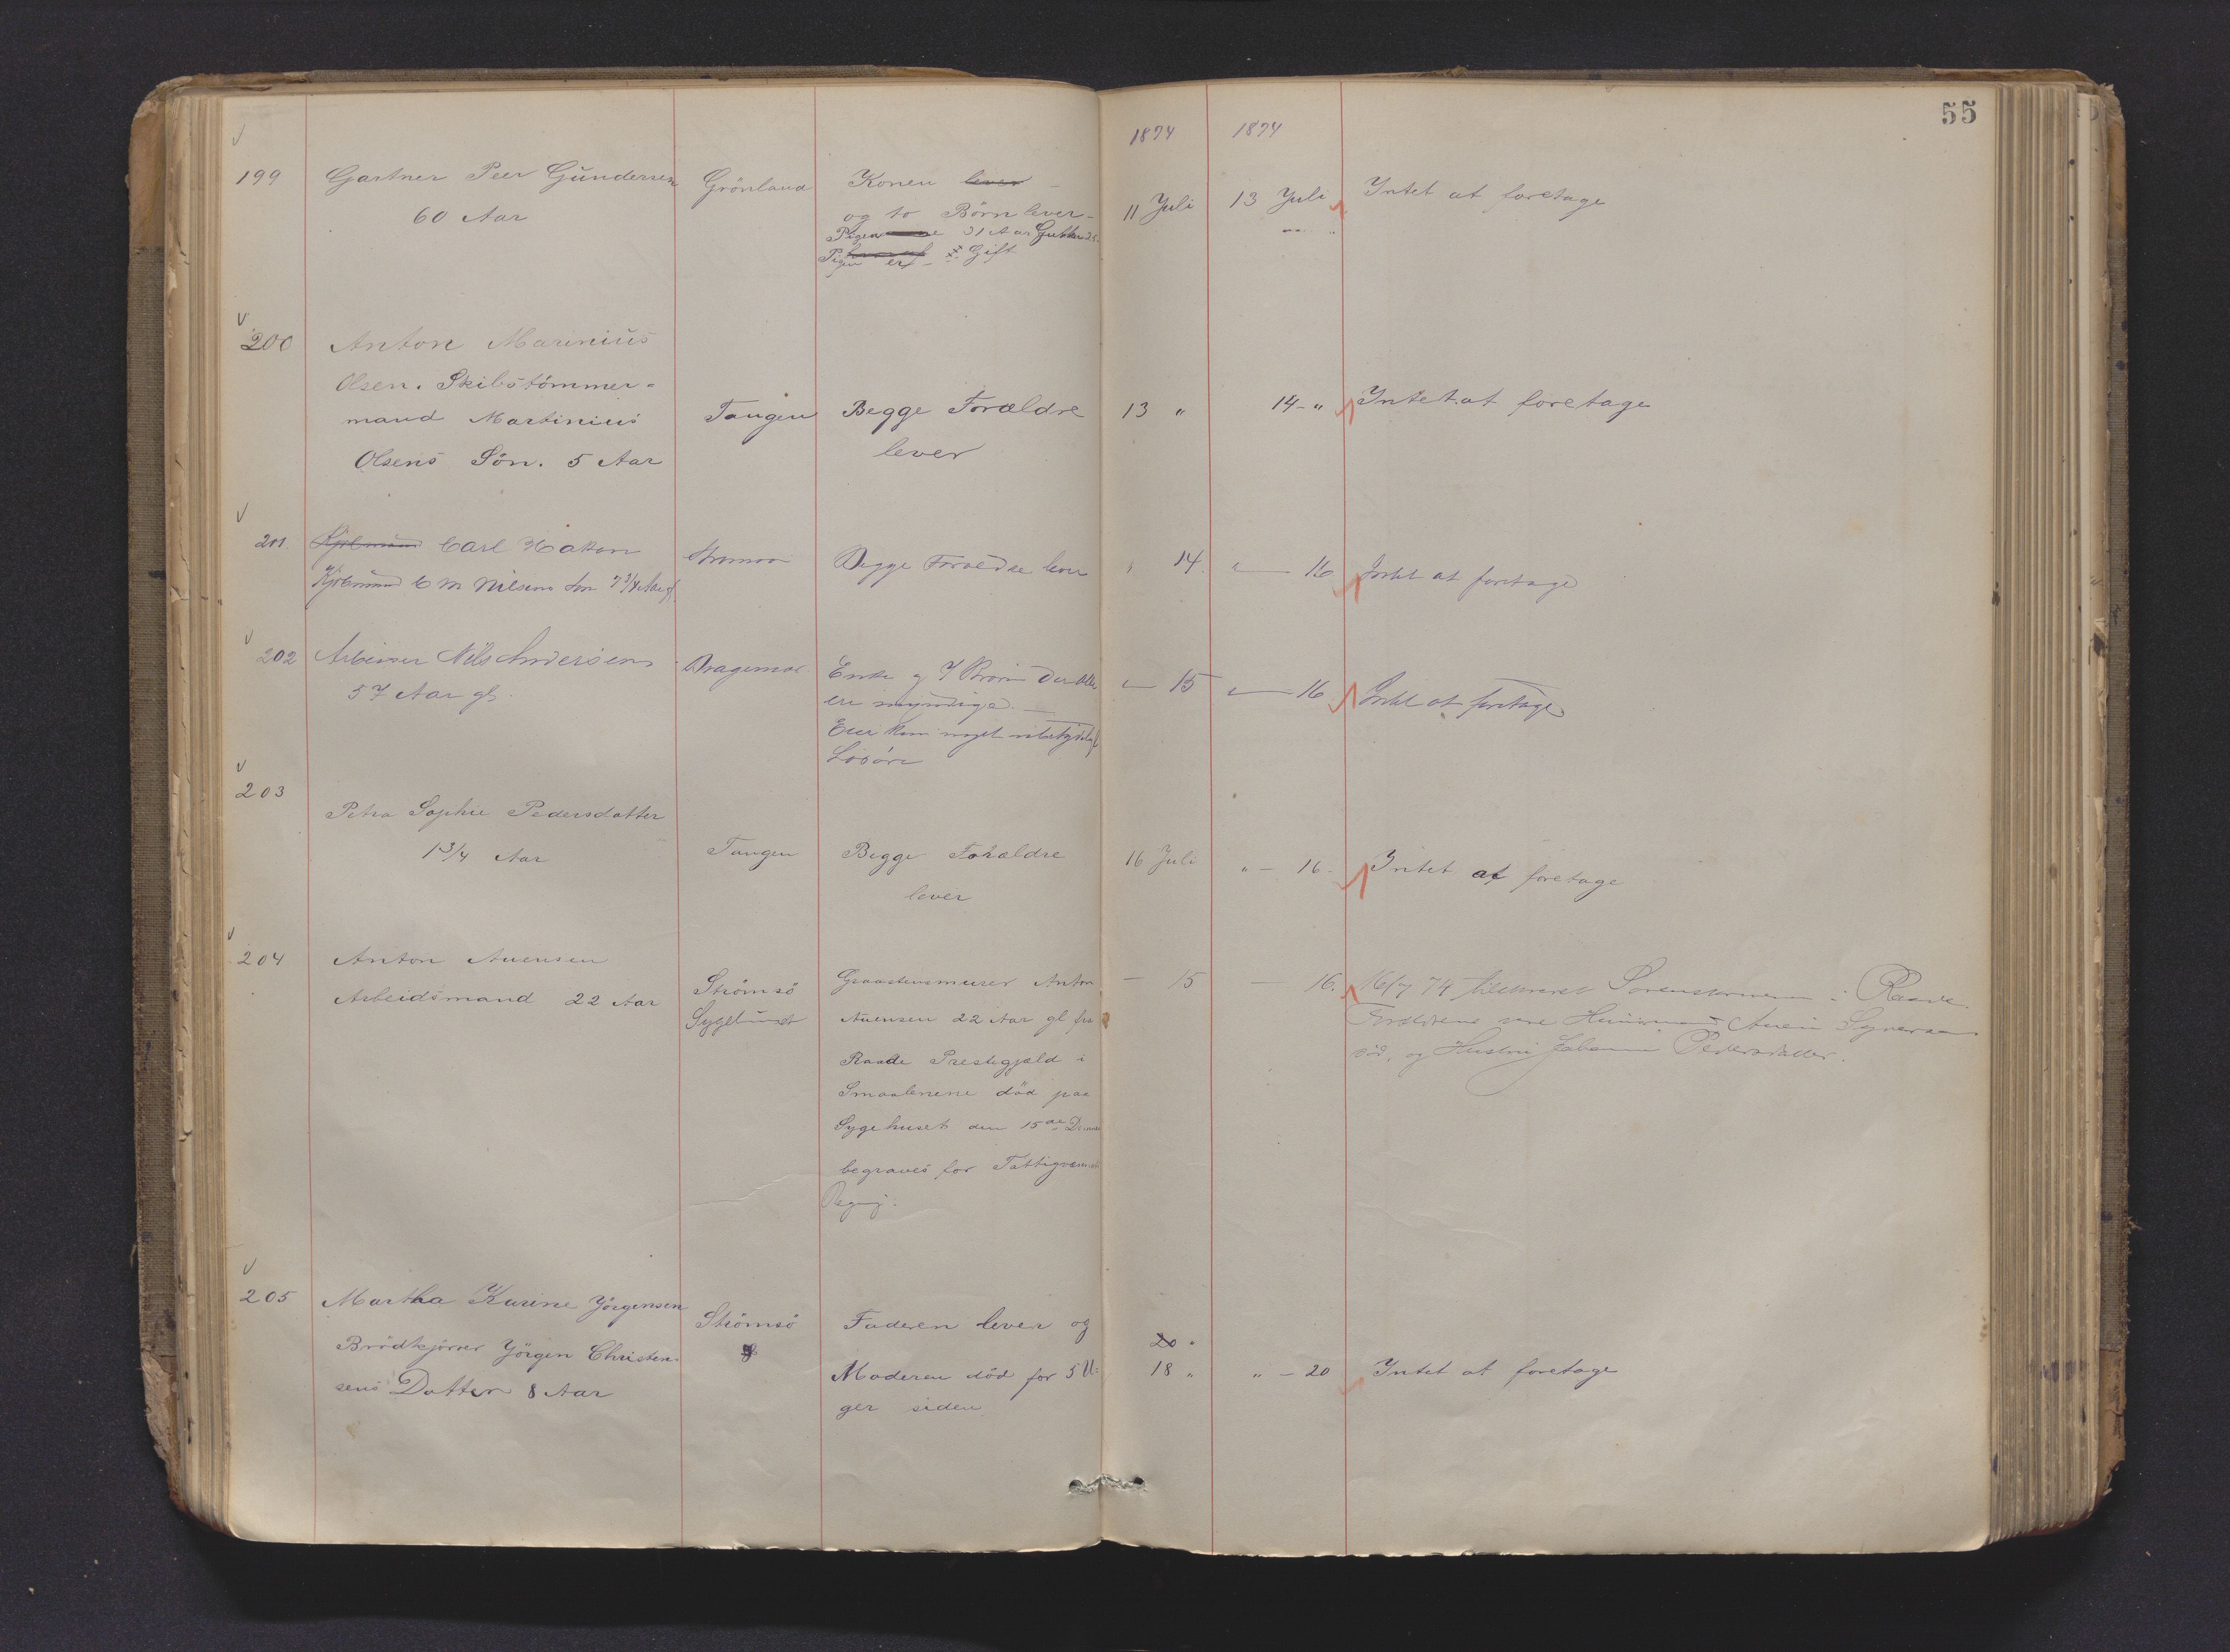 55
1874 1874
199 Gartner Peer Gundersen Grönland Konen lever 11 Juli 13 Juli Intet at foretage
60 Aar og to Börn lever
Pigen 31 Aar Gutten
Pigen er Gift
200 Anton Marinius
Olsen. Skibstömmer-
mand Martinius Tangen Begge Forældre 13 " 14 - " Intet at foretage
Olsens Sön. 5 Aar lever
201 Kjöbmand Carl Hakon Begge Forældre lever " 14. " 16 Intet at foretage
Kjöbmand C M Nilsens Sön 7 3/4 Aar gl
202 Arbeider Nils Andersen Bragernæs Enke og 7 Börn der alle " 15 " 16 Intet at foretage
57 Aar gl. ere myndige.
Eier kun noget ubetydeligt
Lösöre
203
Petra Sophie Pedersdatter
1 3/4 Aar Tangen Begge Forældre 16 Juli " - 16 - Intet at foretage
lever
204 Anton Auensen
Arbeidsmand 22 Aar Strömsö Graastensmurer Anton - 15 - 16. 16/7 74 tilskrevet Sorenskriveren i Raade.
Sygehuset Auensen 22 Aar gl fra Forældrene vare Husmand Auen Syversen
Raade Prestegjæld i död, og Hustru Pedersdatter.
Smaalenene död paa
Sygehuset den 15de Dennes
begraves for Fattigvæsenets
Regning.
205 Martha Karine Jörgensen Strömsö Faderen lever og 20 "
Brödkjörer Jörgen Christen- Moderen död for 5 U- 18 " " - 20 Intet at foretage
sens Datter 8 Aar ger siden